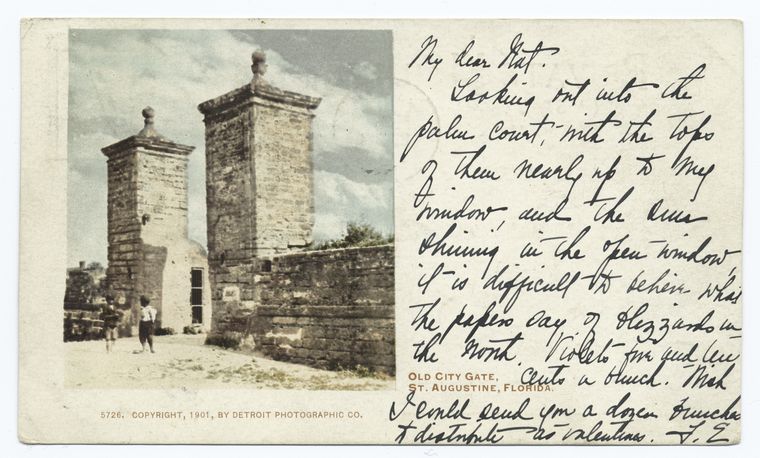 My dear Nat.
Looking out into the
palm court, with the tops
of them nearly up to my
window, and the sun
shining in the open window,
it is difficult to believe what
the papers say of blizzards in
the North. Violets five and ten
cents a bunch. Wish
I could send you a dozen bunches
to distribute as valentines. – F. E
OLD CITY GATE,
ST. AUGUSTINE, FLORIDA.
5726. COPYRIGHT, 1901, BY DETROIT PHOTOGRAPHIC CO.